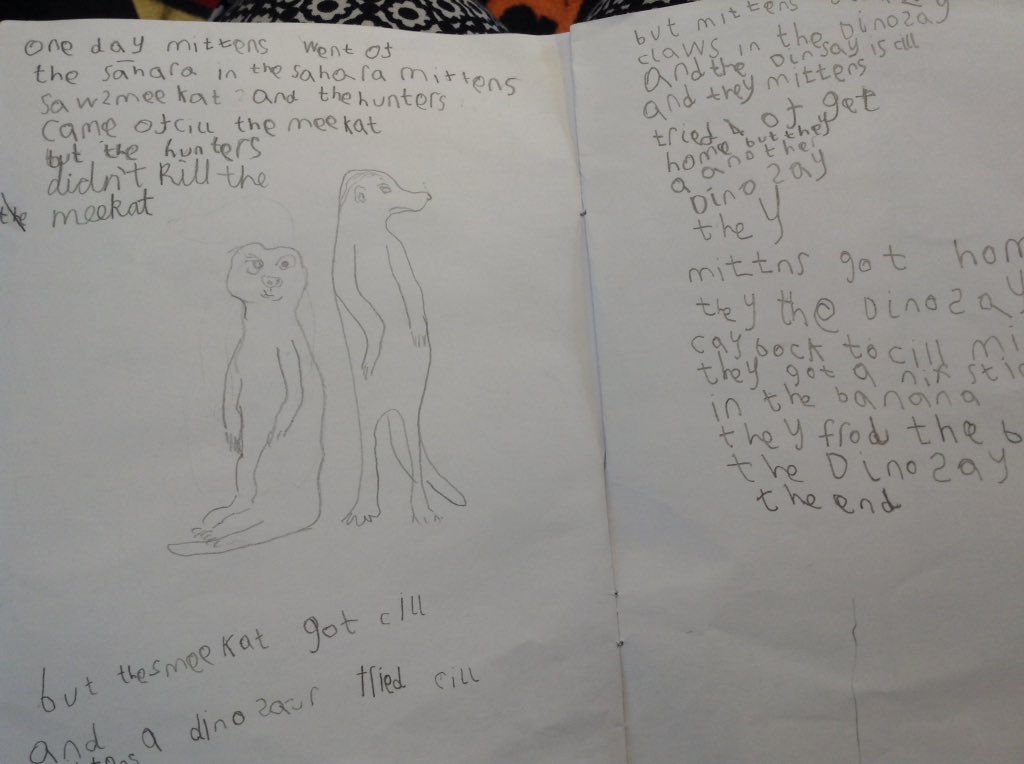 one day mittens went of
the sahara in the sahara mittens
saw 2 meekat and the hunters
came of cill the meekat
but the hunters
didn't kill the
the meekat
but the meekat got cill
and a dinosaur tried cill
but mittens
claws in the Dinosay
and the Dinsay is cill
and they mittens
tried of get
home but they
a another
Dinosay
they
mittns got hom
they the Dinosay
cay bock to cill mi
they got a nif stic
in the banana
they frod the b
the Dinosay
the end